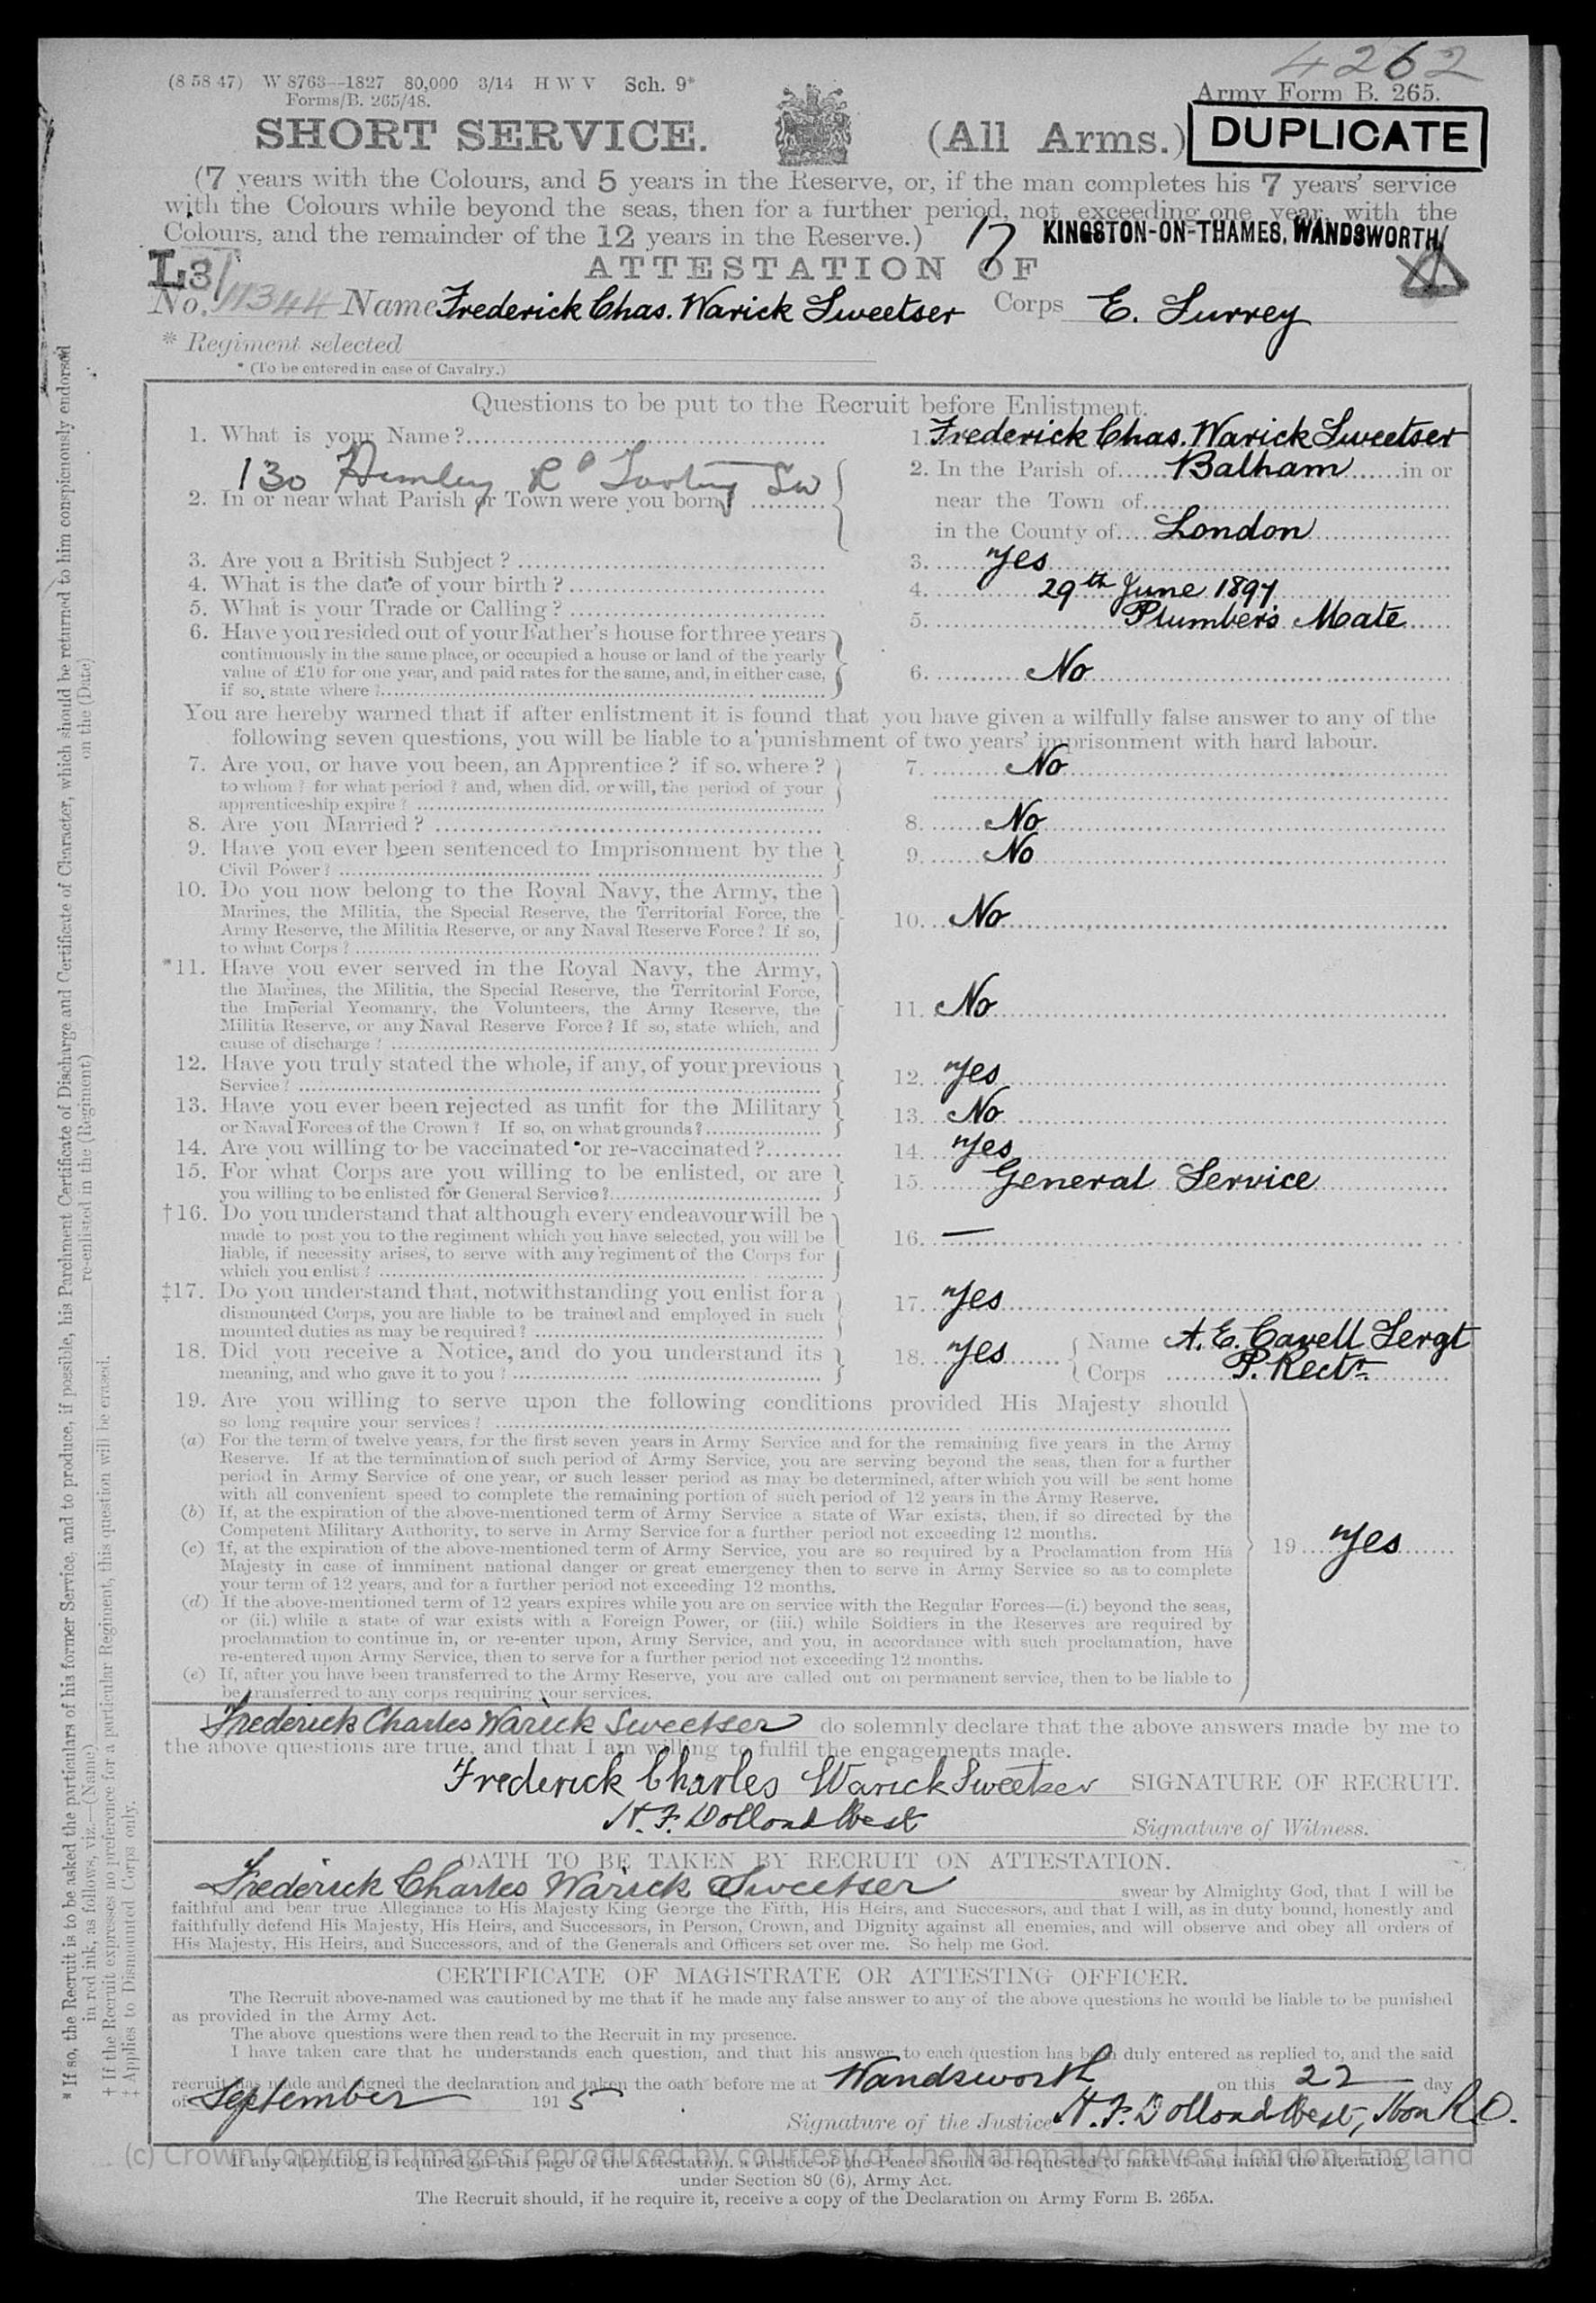 4262
(8 58 47) W 8763—1827 80,000 3/14 H W V Sch. 9*
Army Form B. 265.
Forms/B. 265/48.
SHORT SERVICE. (All Arms.) DUPLICATE
(7 years with the Colours, and 5 years in the Reserve, or, if the man completes his 7 years' service
with the Colours while beyond the seas, then for a further period, not exceeding one year, with the
Colours, and the remainder of the 12 years in the Reserve.) 17 KINGSTON-ON-THAMES, WANDSWORTH
ATTESTATION OF
L3/
No. 11344 Name Frederick Chas. Warick Sweetser Corps E. Surrey
* Regiment selected
* (To be entered in case of Cavalry.)
Questions to be put to the Recruit before Enlistment.
1. What is your Name? 1. Frederick Chas. Warick Sweetser
130 Himley Rd Tooting SW
2. In or near what Parish or Town were you born? 2. In the Parish of Balham in or
near the Town of
in the County of London
3. Are you a British Subject? 3. Yes
4. What is the date of your birth? 4. 29th June 1897
5. What is your Trade or Calling? 5. Plumber's Mate
6. Have you resided out of your Father's house for three years
continuously in the same place, or occupied a house or land of the yearly
value of £10 for one year, and paid rates for the same, and, in either case, 6. No
if so, state where?
You are hereby warned that if after enlistment it is found that you have given a wilfully false answer to any of the
following seven questions, you will be liable to a punishment of two years' imprisonment with hard labour.
7. Are you, or have you been, an Apprentice? if so, where? 7. No
to whom? for what period? and, when did, or will, the period of your
apprenticeship expire?
8. Are you Married? 8. No
9. Have you ever been sentenced to Imprisonment by the 9. No
Civil Power?
10. Do you now belong to the Royal Navy, the Army, the
Marines, the Militia, the Special Reserve, the Territorial Force, the 10. No
Army Reserve, the Militia Reserve, or any Naval Reserve Force? If so,
to what Corps?
*11. Have you ever served in the Royal Navy, the Army,
the Marines, the Militia, the Special Reserve, the Territorial Force,
the Imperial Yeomanry, the Volunteers, the Army Reserve, the 11. No
Militia Reserve, or any Naval Reserve Force? If so, state which, and
cause of discharge?
12. Have you truly stated the whole, if any, of your previous 12. Yes
Service?
13. Have you ever been rejected as unfit for the Military 13. No
or Naval Forces of the Crown? If so, on what grounds?
14. Are you willing to be vaccinated or re-vaccinated? 14. Yes
15. For what Corps are you willing to be enlisted, or are 15. General Service
you willing to be enlisted for General Service?
†16. Do you understand that although every endeavour will be
made to post you to the regiment which you have selected, you will be 16. —
liable, if necessity arises, to serve with any regiment of the Corps for
which you enlist?
‡17. Do you understand that, notwithstanding you enlist for a 17. Yes
dismounted Corps, you are liable to be trained and employed in such
mounted duties as may be required?
18. Did you receive a Notice, and do you understand its 18. Yes Name A. E. Cavell Sergt
meaning, and who gave it to you? Corps P. Rectr.
19. Are you willing to serve upon the following conditions provided His Majesty should
so long require your services?
(a) For the term of twelve years, for the first seven years in Army Service and for the remaining five years in the Army
Reserve. If at the termination of such period of Army Service, you are serving beyond the seas, then for a further
period in Army Service of one year, or such lesser period as may be determined, after which you will be sent home
with all convenient speed to complete the remaining portion of such period of 12 years in the Army Reserve.
(b) If, at the expiration of the above-mentioned term of Army Service a state of War exists, then, if so directed by the
Competent Military Authority, to serve in Army Service for a further period not exceeding 12 months.
(c) If, at the expiration of the above-mentioned term of Army Service, you are so required by a Proclamation from His 19 Yes
Majesty in case of imminent national danger or great emergency then to serve in Army Service so as to complete
your term of 12 years, and for a further period not exceeding 12 months.
(d) If the above-mentioned term of 12 years expires while you are on service with the Regular Forces—(i.) beyond the seas,
or (ii.) while a state of war exists with a Foreign Power, or (iii.) while Soldiers in the Reserves are required by
proclamation to continue in, or re-enter upon, Army Service, and you, in accordance with such proclamation, have
re-entered upon Army Service, then to serve for a further period not exceeding 12 months.
(e) If, after you have been transferred to the Army Reserve, you are called out on permanent service, then to be liable to
be transferred to any corps requiring your services.
I Frederick Charles Warick Sweetser do solemnly declare that the above answers made by me to
the above questions are true, and that I am willing to fulfil the engagements made.
Frederick Charles Warick Sweetser SIGNATURE OF RECRUIT.
H. F. Dollond West Signature of Witness.
OATH TO BE TAKEN BY RECRUIT ON ATTESTATION.
Frederick Charles Warick Sweetser swear by Almighty God, that I will be
faithful and bear true Allegiance to His Majesty King George the Fifth, His Heirs, and Successors, and that I will, as in duty bound, honestly and
faithfully defend His Majesty, His Heirs, and Successors, in Person, Crown, and Dignity against all enemies, and will observe and obey all orders of
His Majesty, His Heirs, and Successors, and of the Generals and Officers set over me. So help me God.
CERTIFICATE OF MAGISTRATE OR ATTESTING OFFICER.
The Recruit above-named was cautioned by me that if he made any false answer to any of the above questions he would be liable to be punished
as provided in the Army Act.
The above questions were then read to the Recruit in my presence.
I have taken care that he understands each question, and that his answer to each question has been duly entered as replied to, and the said
recruit has made and signed the declaration and taken the oath before me at Wandsworth on this 22 day
of September 1915
Signature of the Justice H. F. Dollond West, Hon R.O.
(c) Crown Copyright Images reproduced by courtesy of The National Archives, London, England
If any alteration is required on this page of the Attestation, a Justice of the Peace should be requested to make it and initial the alteration
under Section 80 (6), Army Act.
The Recruit should, if he require it, receive a copy of the Declaration on Army Form B. 265A.
* If so, the Recruit is to be asked the particulars of his former Service, and to produce, if possible, his Parchment Certificate of Discharge and Certificate of Character, which should be returned to him conspicuously endorsed
in red ink, as follows, viz.—(Name) re-enlisted in the (Regiment) on the (Date)
† If the Recruit expresses no preference for a particular Regiment, this question will be erased.
‡ Applies to Dismounted Corps only.